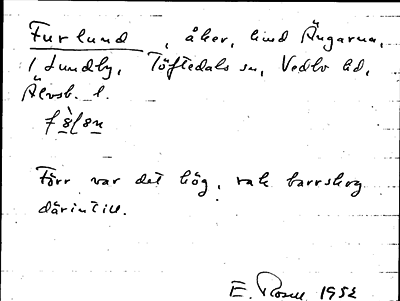 Furlund, åker, hmd Ängarna,
1 Lundby, Töftedals sn, Vedbo hd,
Älvsb. l.

Förr var det hög, rak barrskog
därintill.
E. Rosell 1952